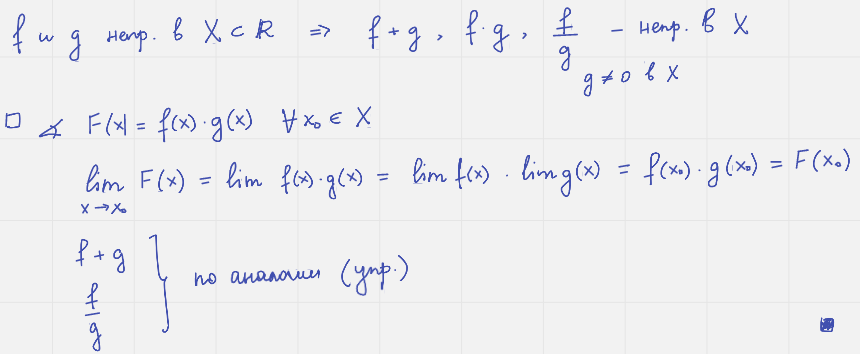 f и g непр. в X ⊂ R ⇒ f + g, f · g, f/g – непр. в X
g ≠ 0 в X
□ ∡ F(x) = f(x) · g(x) ∀ x₀ ∈ X
lim F(x) = lim f(x) · g(x) = lim f(x) · lim g(x) = f(x₀) · g(x₀) = F(x₀)
x → x₀
f + g
f/g } по аналогии (упр.)
■